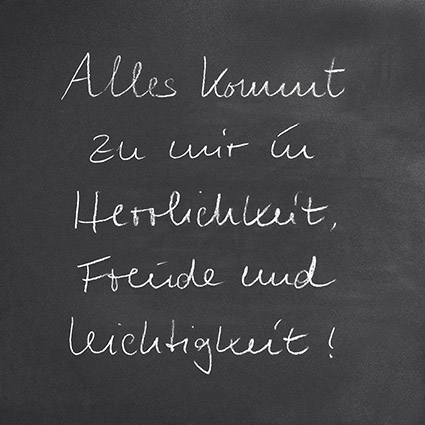 Alles kommt
zu mir in
Herrlichkeit,
Freude und
Leichtigkeit!